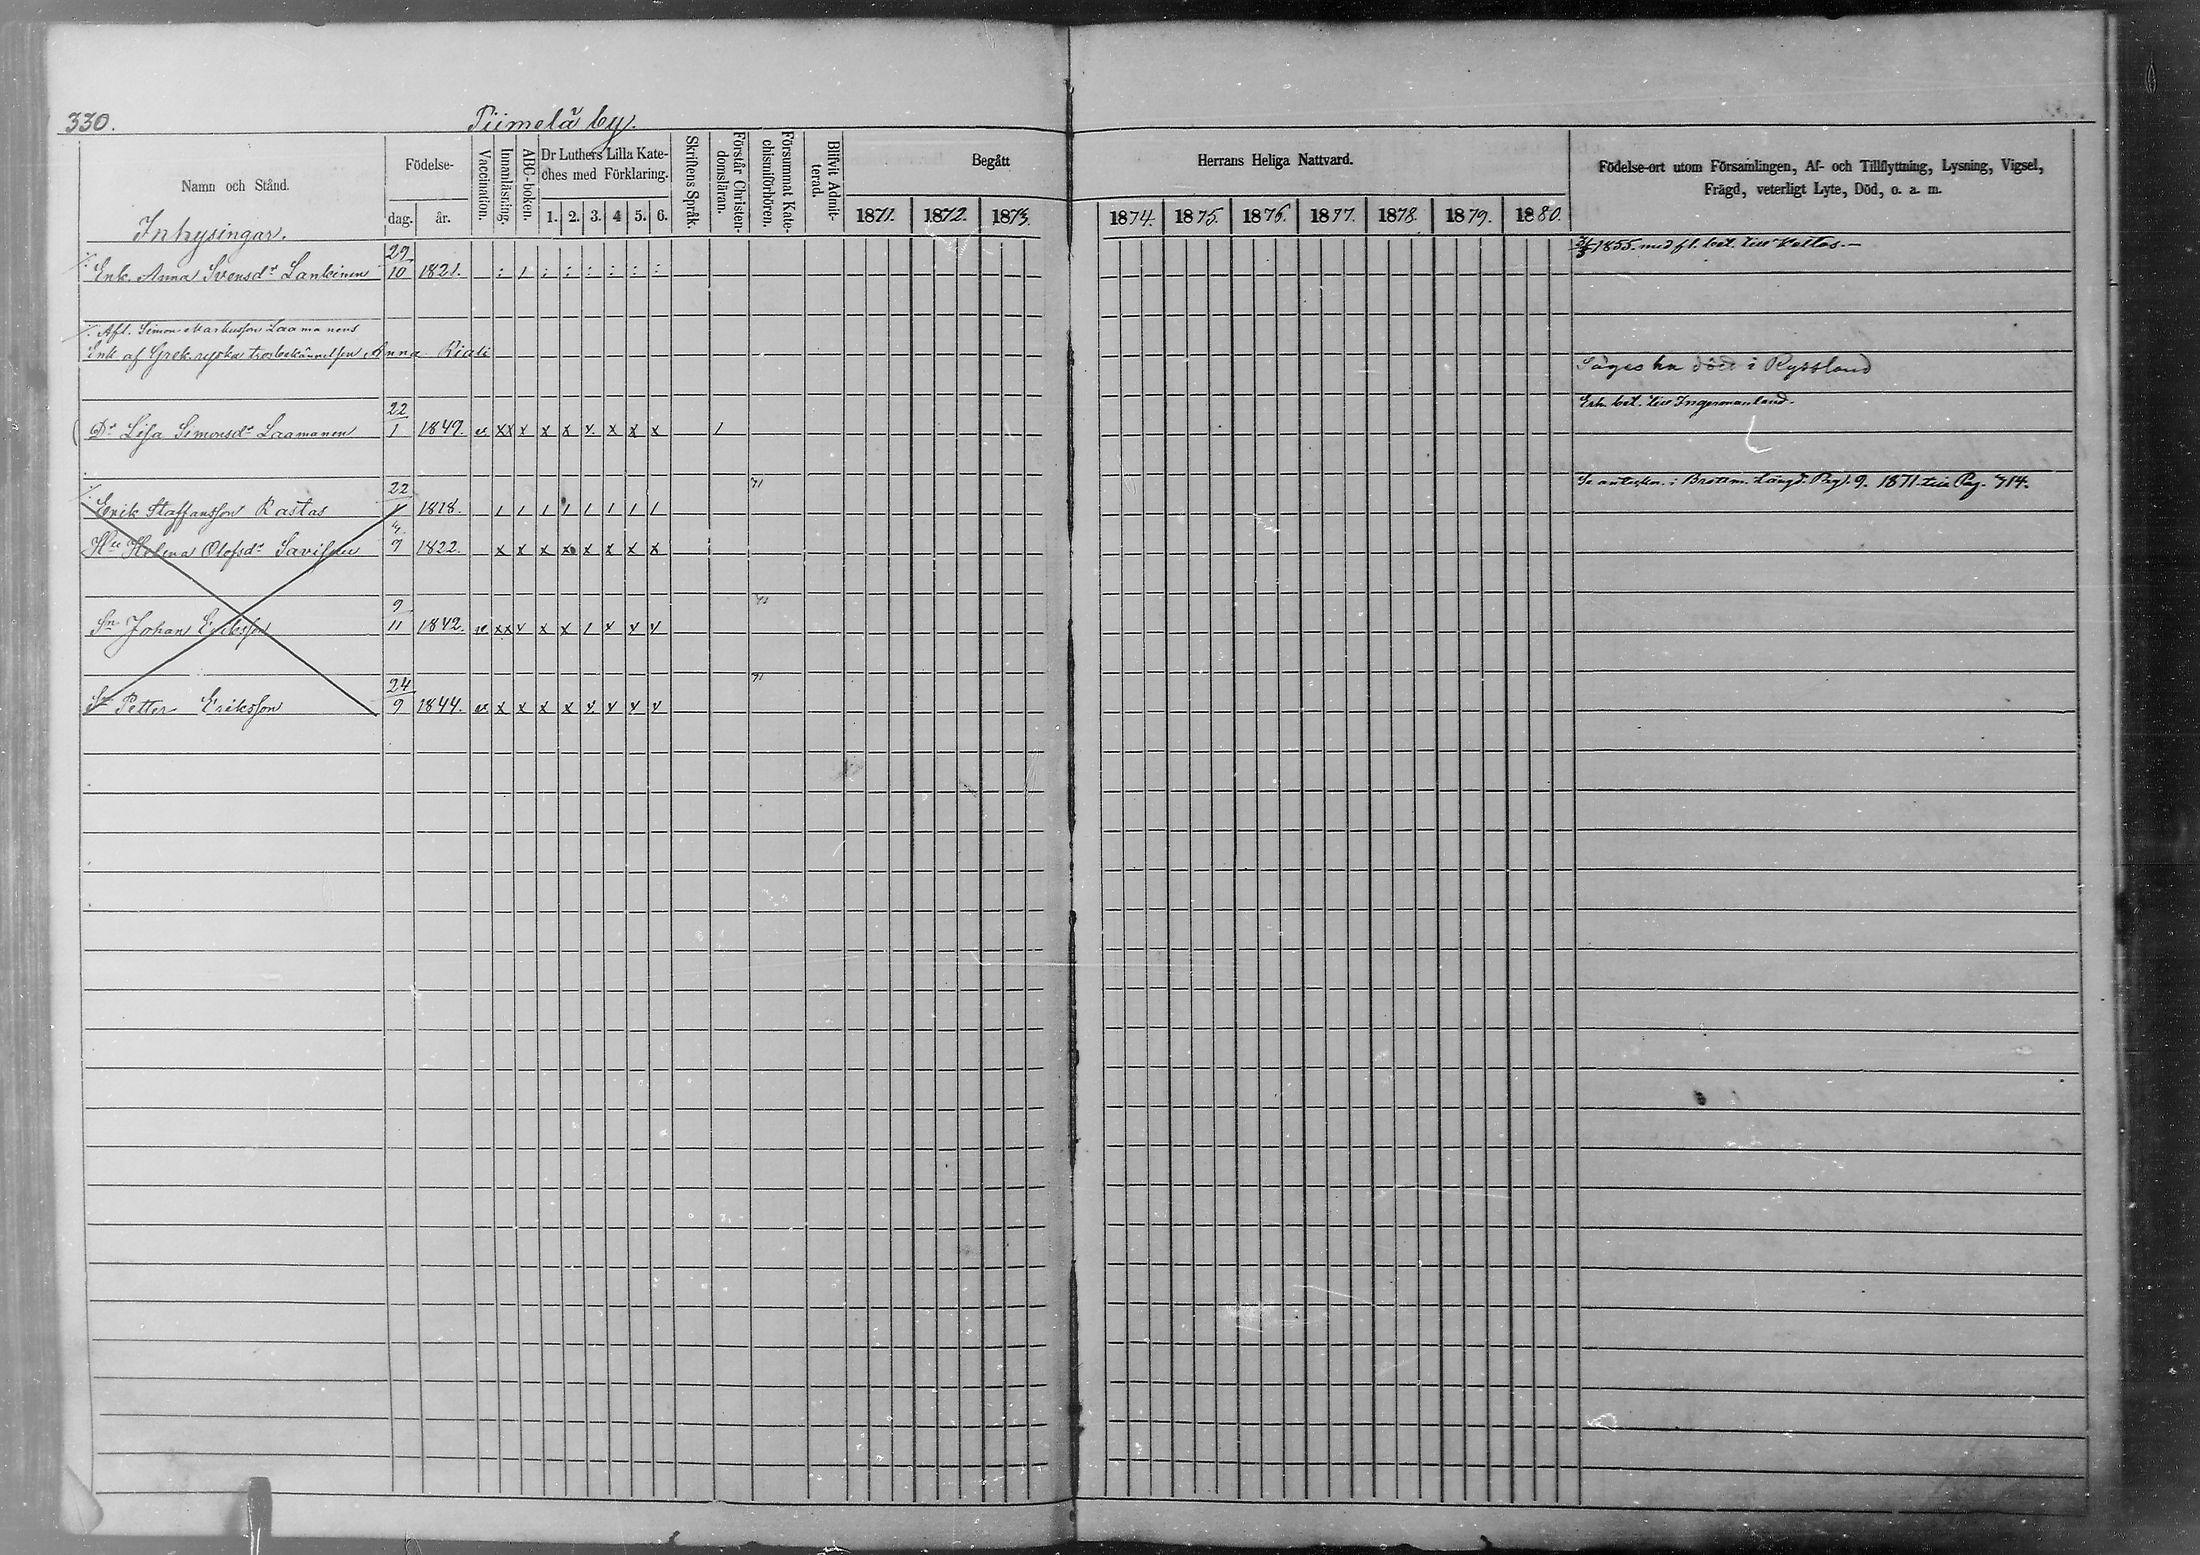 330.
Tiimelä by.
Namn och Stånd.
Födelse-
dag.
år.
Vaccination.
Innanläsning.
ABC-boken.
Dr Luthers Lilla Kate-
ches med Förklaring.
1. 2. 3. 4 5. 6.
Skriftens Språk.
Förstår Christen-
domsläran.
Försummat Kate-
chismiförhören.
Blifvit Admit-
terad.
Begått
1871. 1872. 1873.
Herrans Heliga Nattvard.
1874. 1875. 1876. 1877. 1878. 1879. 1880.
Födelse-ort utom Församlingen, Af- och Tillflyttning, Lysning, Vigsel,
Frägd, veterligt Lyte, Död, o. a. m.
Inhysingar.
Enk. Anna Svensdr Lankinen 29/10 1821. 1855. med fl. bet. till
Afl. Simon Markusson Laamanens
Enk. af Grek. ryska trosbekännelsen Anna
Säges ha död i Ryssland
Dr Lisa Simonsdr Laamanen 22/1 1849. x xx x x x x x x x 1 Erh. bet. till Ingermanland.
Erik Staffansson Rastas 22 1818. 1 1 1 1 1 1 1 1 71 Se anteckn. i Brottm. Längd. Pag. 9. 1871 till Pag. 714.
Hu Helena Olofsdr 7 1822. x x x x x x x x
Sn Johan Eriksson 9/11 1842. xx x x x 1 x x x
Sn Petter Eriksson 24/9 1844. x x x x x x x x 71